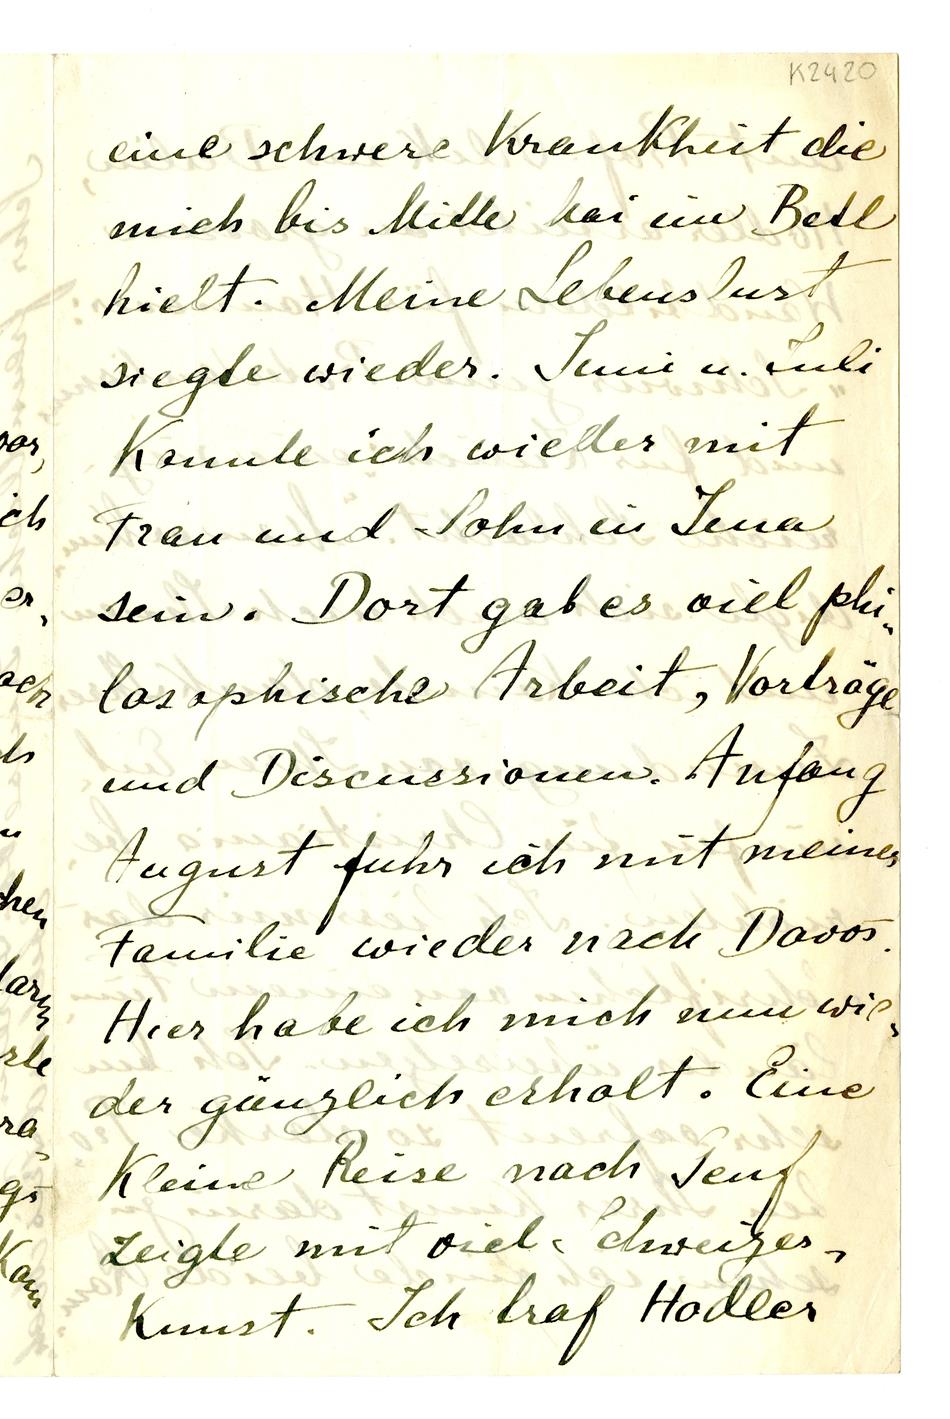 K2420
eine schwere Krankheit die
mich bis Mitte Mai im Bett
hielt. Meine Lebenslust
siegte wieder. Juni u. Juli
Konnte ich wieder mit
Frau und Sohn in Jena
sein. Dort gab es viel phi-
losophische Arbeit, Vorträge
und Discussionen. Anfang
August fuhr ich mit meiner
Familie wieder nach Davos.
Hier habe ich mich nun wie-
der gänzlich erholt. Eine
Kleine Reise nach Genf
zeigte mir viel Schweizer-
Kunst. Ich traf Hodler